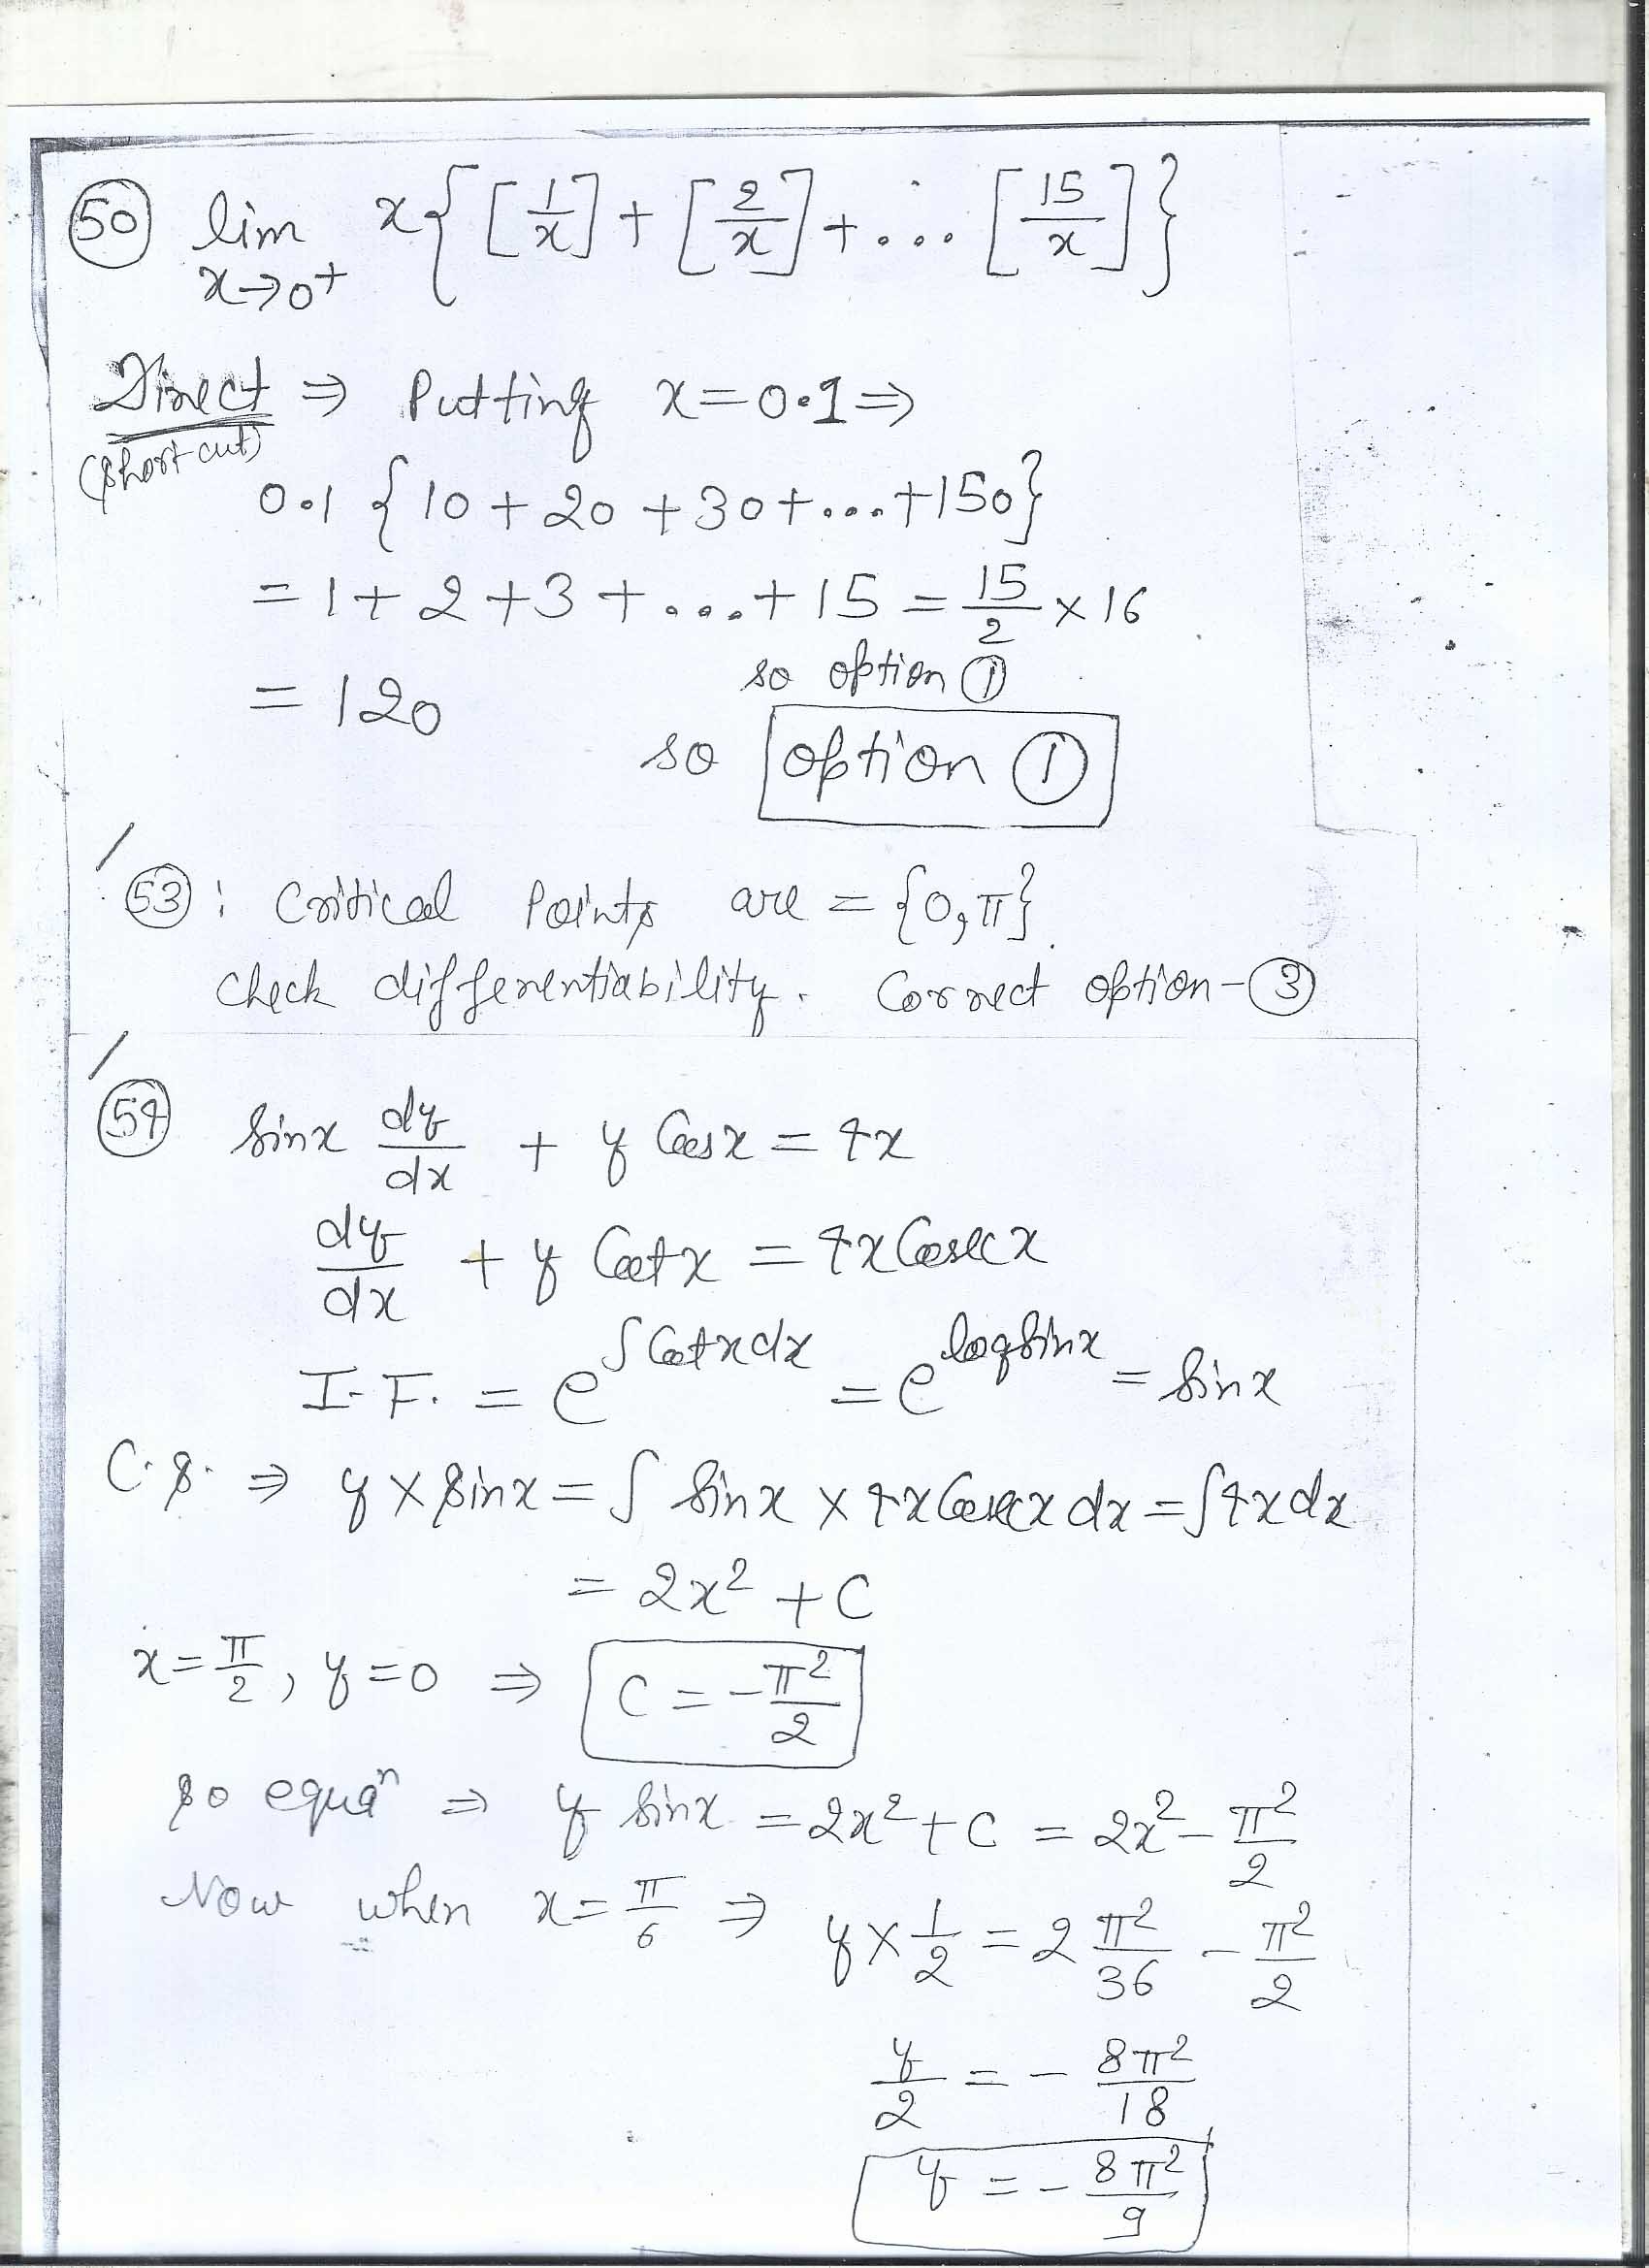 (50) lim x→0+ x{[1/x]+[2/x]+...[15/x]}
Direct ⇒ Putting x=0.1⇒
(short cut)
0.1 {10+20+30+...+150}
=1+2+3+...+15=15/2×16
so option (1)
=120
so option (1)
(53): Critical Points are = {0,π}.
Check differentiability. Correct option-(3)
(54) sinx dy/dx + y Cosx = 4x
dy/dx + y Cotx = 4x Cosecx
I.F. = e^∫Cotxdx = e^logsinx = sinx
C.S. ⇒ y×sinx = ∫ sinx × 4x Cosecx dx = ∫4xdx
= 2x²+C
x=π/2, y=0 ⇒ C=-π²/2
so equaⁿ ⇒ y sinx = 2x²+C = 2x²-π²/2
Now when x=π/6 ⇒ y×1/2 = 2 π²/36 - π²/2
y/2 = - 8π²/18
y = - 8π²/9